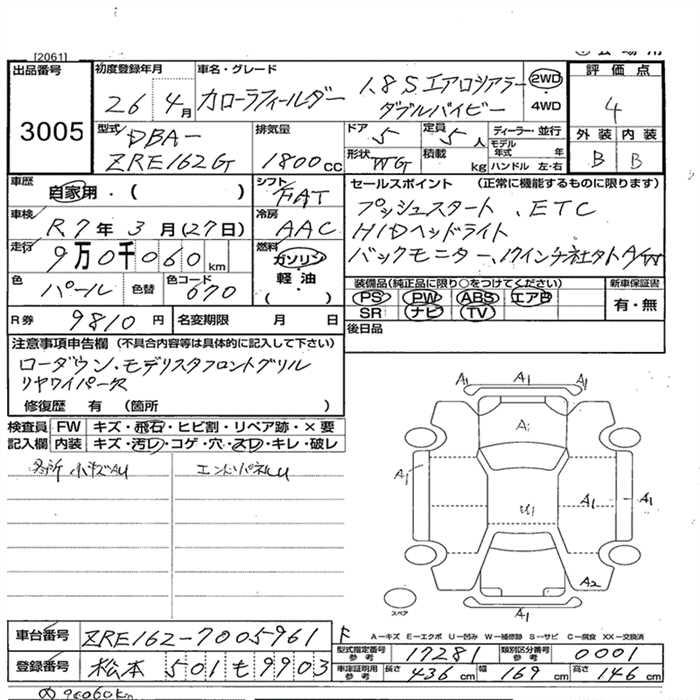 [2061]
出品番号 初度登録年月 車名・グレード 2WD 評価点
3005 26年 4月 カローラフィールダー 1.8S エアロツアラー 4WD 4
ダブルバイビー
型式 DBA- 排気量 ドア 5 定員 5人 ディーラー・並行 外装 内装
ZRE162G 1800cc 形状 WG 積載 kg モデル年式 年 ハンドル 左・右 B B
車歴 自家用・( ) シフト FAT セールスポイント (正常に機能するものに限ります)
車検 R7年 3月(27日) 冷房 AAC プッシュスタート、ETC
HIDヘッドライト
走行 9万0千060km 燃料 ガソリン・軽油 ( ) バックモニター、17インチ社外AW
色 パール 色替 色コード 070 装備品(純正品に限り○をつけてください) 新車保証書
PS PW ABS エアB 有・無
SR ナビ TV
R券 9810円 名変期限 月 日 後日品
注意事項申告欄 (不具合内容等は具体的に記入して下さい)
ローダウン・モデリスタフロントグリル
リヤワイパー欠
修復歴 有 (箇所 )
検査員 FW キズ・飛石・ヒビ割・リペア跡・×要
記入欄 内装 キズ・汚レ・コゲ・穴・スレ・キレ・破レ
各所小キズAU エンドパネルU
A1 A1 A1
A1
A1 U1 A1 A1
A2
スペア A1
A−キズ E−エクボ U−凹み W−補修跡 S−サビ C−腐食 XX−交換済
車台番号 ZRE162-7005961 F 型式指定番号 参考 17281 類別区分番号 参考 0001
登録番号 松本 501 も 9903 車庫証明用 参考 長さ 436cm 幅 169cm 高さ 146cm
90060km